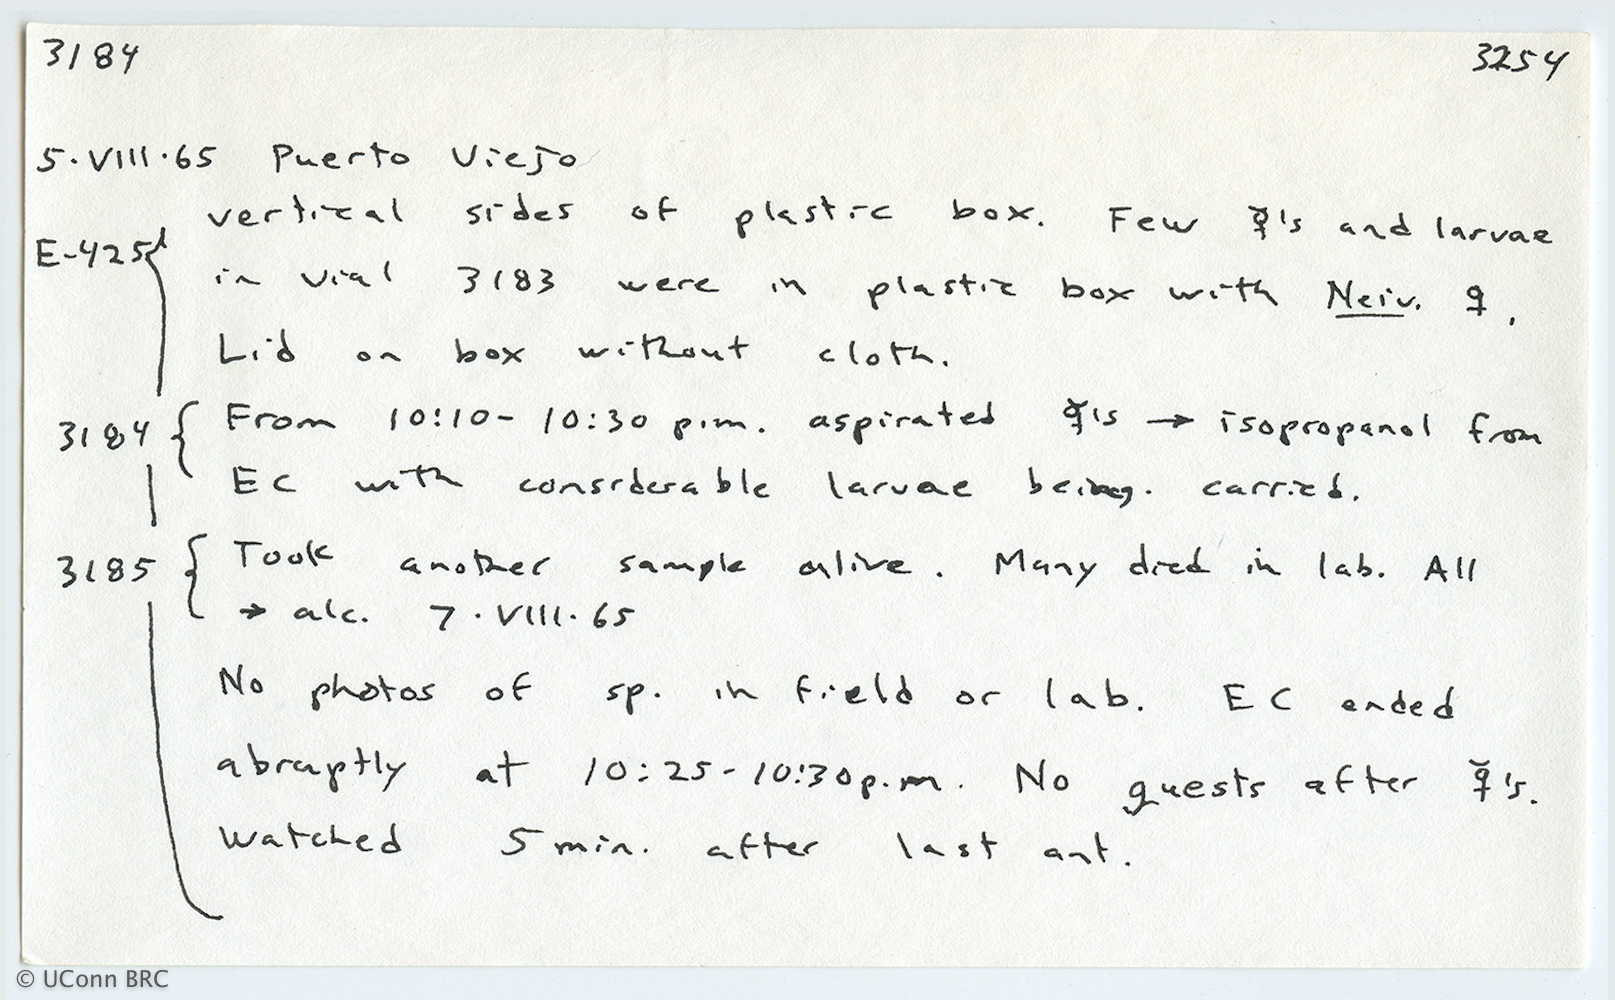 3184 3254
5.VIII.65 Puerto Viejo
vertical sides of plastic box. Few ☿'s and larvae
E-425
in vial 3183 were in plastic box with Neiv. ♀.
Lid on box without cloth.
3184 { From 10:10-10:30 p.m. aspirated ☿'s → isopropanol from
EC with considerable larvae being carried.
3185 { Took another sample alive. Many died in lab. All
→ alc. 7.VIII.65
No photos of sp. in field or lab. EC ended
abruptly at 10:25-10:30 p.m. No guests after ☿'s.
Watched 5 min. after last ant.
© UConn BRC